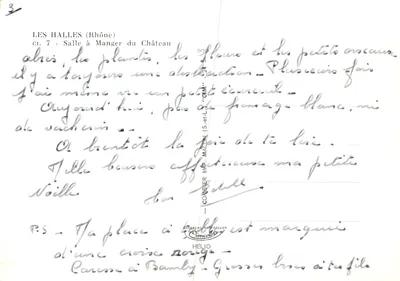 3
LES HALLES (Rhône)
cr. 7 - Salle à Manger du Château
les plantes, les fleurs et les petits oiseaux
il y a toujours une distraction - Plusieurs fois
j'ai même vu un petit écureuil -
Aujourd'hui, pas de fromage blanc, ni
de vacherin ..
A bientôt la joie de te lire -
Mille baisers affectueux ma petite
Noëlle
P.S - Ma place à table est marquée
d'une croix rouge -
Caresse à Bamby - Grosses bises à ta fille
HELIO